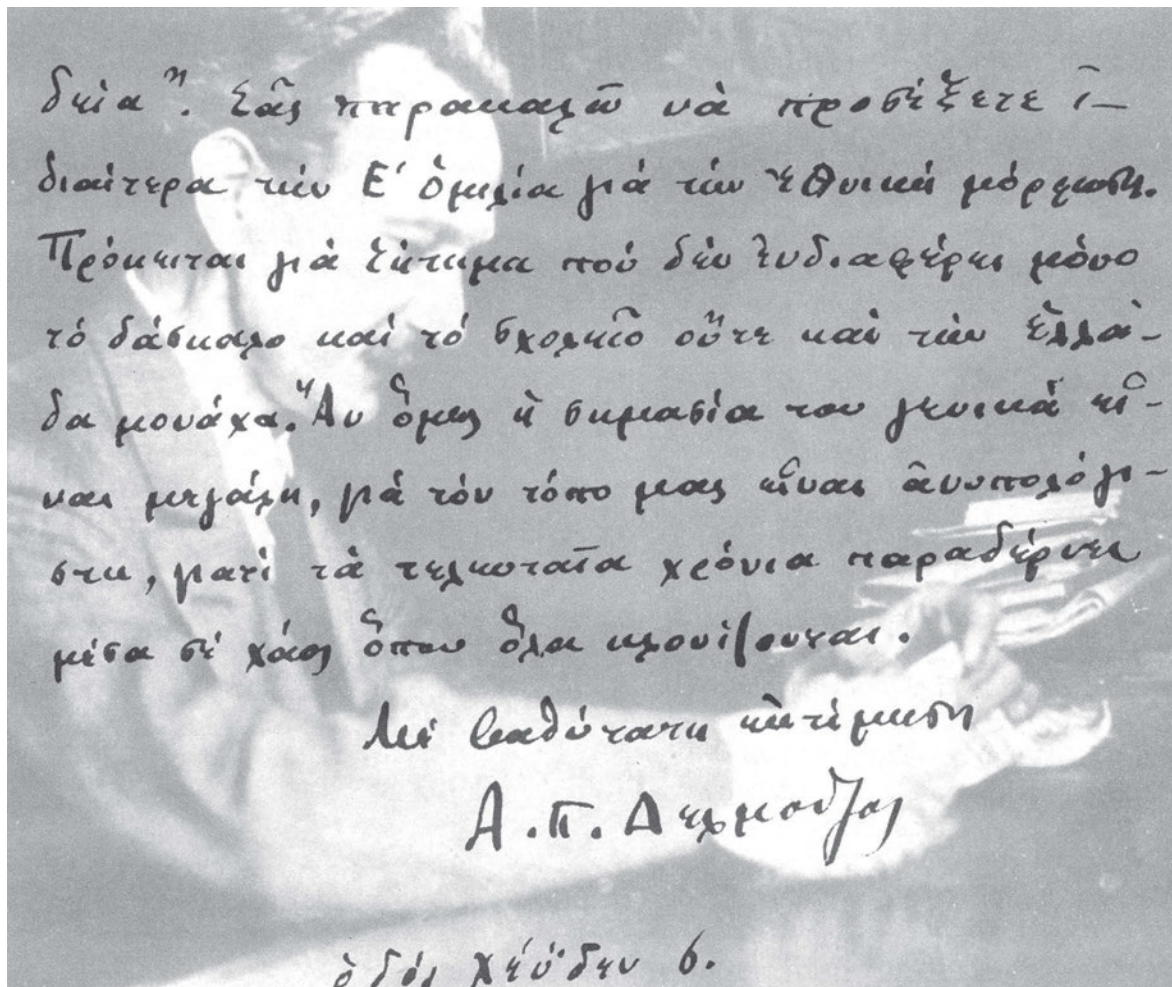 δεία". Σᾶς παρακαλῶ νὰ προσέξετε ἰ-
διαίτερα τὴν Ε' ὁμιλία γιὰ τὴν ἐθνικὴ μόρφωση.
Πρόκειται γιὰ ζήτημα ποὺ δὲν ἐνδιαφέρει μόνο
τὸ δάσκαλο καὶ τὸ σχολεῖο οὔτε καὶ τὴν Ἑλλά-
δα μονάχα. Ἂν ὅμως ἡ σημασία του γενικὰ εἶ-
ναι μεγάλη, γιὰ τὸν τόπο μας εἶναι ἀνυπολόγι-
στη, γιατὶ τὰ τελευταῖα χρόνια παραδέρνει
μέσα σὲ χάος ὅπου ὅλα κλονίζουνται.
Μὲ βαθύτατη ἐκτίμηση
Α. Π. Δελμοῦζος
ὁδὸς Χέϋδεν 6.